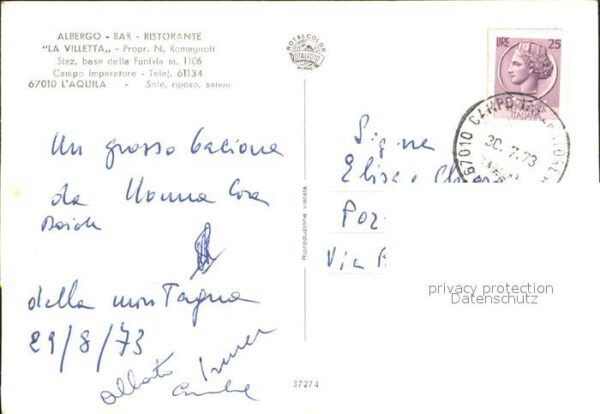 ALBERGO - BAR - RISTORANTE
"LA VILLETTA" - Propr. N. Romagnoli
Staz. base della Funivia m. 1106
Campo Imperatore - Telef. 61134
67010 L'AQUILA - Sole, riposo, salute
ROTALCOLOR
ROTALFOTO
MILANO
LIRE 25
ITALIANE
67010 CAMPO IMPERATORE
30.7.73
Un grosso bacione
da Nonna Cora
della montagna
29/8/73
Alberto
Sig.ne
Elisa e Chiara
Poz
Via
Riproduzione vietata
37274
privacy protection
Datenschutz